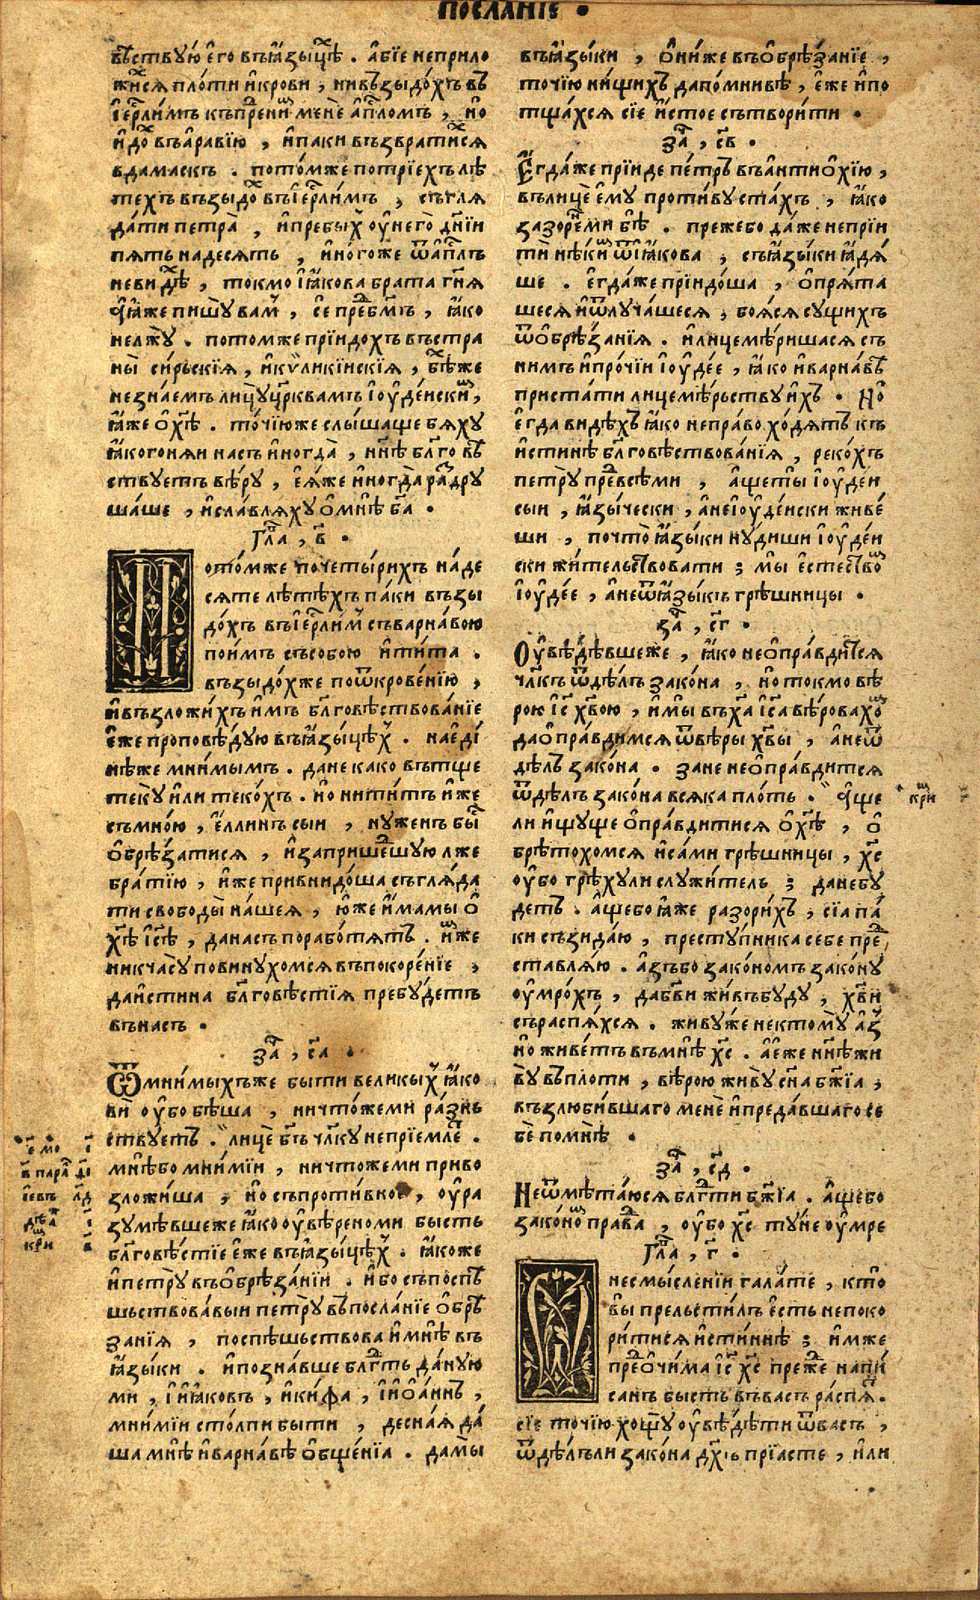 посланїє •
вѣствую єго въꙗзыцѣх . абїе неприло
жихся плоти и крови , ни възыдохъ въ
ї҆ерлимъ къ прежнимъ мене апломъ , но
идох въ аравїю , и паки възвратихся
в дамаскъ . потомже по трїехъ лѣ
техъ възыдох въ ї҆ерлимъ , съгля
дати петра , и пребых оу него днїи
пять на десять , иногоже ѿ апслъ
не видѣх , токмо їꙗкова брата гня
ꙗже пишу вам , се пред бгмъ , ꙗко
не лжу . потомже прїидохъ въ стра
ны сирьскїя , и киликїискїя , бѣхже
незнаемъ лицу црквамъ їоудеиским ,
ꙗже о хсѣ . точїюже слышаще бяху
ꙗко гоняи насъ иногда , ннѣ блговѣ
ствуетъ вѣру , еяже иногда раздру
шаше , и славляху о мнѣ ба •
Гла , в •
Потомже по четырихъ на де
сяте лѣтѣхъ паки възы
дохъ въ ї҆ерлим съ варнавою
поимъ съ собою и тита .
възыдохже по ѿкровенїю ,
и възложихъ имъ блговѣствованїе
еже проповѣдую въ ꙗзыцѣх . на еди
нѣже мнимымъ . да не како вътще
теку или текохъ . но ни титъ иже
съ мною , еллинъ сыи , нуженъ бысть
обрѣзатися , и за пришедшую лже
братїю , иже привнидоша съгляда
ти свободы нашея , юже имамы о
хсѣ їсѣ , да насъ поработятъ . имже
ни к часу повинухомся въ покоренїе ,
да истина блговѣстїя пребудетъ
въ насъ •
за , са •
Ѿ мнимыхъже быти великых ꙗко
ви оубо бѣша , ничтоже ми разнь
ствуетъ . лице бгъ члку не прїемле .
мнѣ бо мнимїи , ничтоже ми приво
зложиша , но съпротивное , оура
зумѣвшеже ꙗко оувѣрено ми бысть
блговѣстїе еже въ ꙗзыцѣх . ꙗкоже
и петру въ обрѣзанїи . ибо съпоспѣ
шьствовавыи петру въ посланїе обрѣ
занїя , поспѣшьствова и мнѣ въ
ꙗзыки . и познавше блгть даную
ми , їꙗковъ , и кифа , ї їоаннъ ,
мнимїи столпи быти , десная да
ша мнѣ и варнавѣ общенїа . да мы
въ ꙗзыки , они же въ обрѣзанїе ,
точїю нищихъ да помнивѣ , еже и по
тщахся сїе истое сътворити .
за , св •
Егдаже прїиде петръ въ антиохїю ,
въ лице ему противу стахъ , ꙗко
зазорем бѣ . преже бо даже не прїи
ти нѣким ѿ їꙗкова , съ ꙗзыки ꙗдя
ше . егдаже прїидоша , опрята
шеся и ѿлучашеся , бояся сущихъ
ѿ обрѣзанїя . и лицемѣришася съ
нимъ и прочїи їоудее , ꙗко и варнавѣ
пристати лицемѣрьству ихъ . Но
егда видѣхъ ꙗко неправо ходятъ къ
истинѣ блговѣствованїя , рекохъ
петру пред всѣми , аще ты їоудеи
сыи , ꙗзычески , а не їоудеиски живе
ши , почто ꙗзыки нудиши їоудеи
ски жительствовати ; мы естеством
їоудее , а не ѿ ꙗзыкъ грѣшницы .
за , сг •
Оувѣдѣвшеже , ꙗко не оправдится
члкъ ѿ дѣлъ закона , но токмо вѣ
рою їс хвою , и мы въ ха їса вѣровахом
да оправдимся ѿ вѣры хвы , а не ѿ
дѣлъ закона . зане не оправдится
ѿ дѣлъ закона всяка плоть . Аще
ли ищуще оправдитися о хсѣ , о
брѣтохомся и сами грѣшницы , хс
оубо грѣху ли служитель ; да не бу
детъ . аще бо ꙗже разорихъ , сїа па
ки съзидаю , преступника себе пред
ставляю . азъ бо закономъ закону
оумрохъ , да бви живъ буду , хви
съраспяхся . живуже не ктому аз
но живетъ въ мнѣ хс . а еже ннѣ жи
ву въ плоти , вѣрою живу сна бжїа ,
възлюбившаго мене и предавшаго се
бе по мнѣ .
за , сд •
Не ѿмѣтаюся блгти бжїа . аще бо
законом правда , оубо хс туне оумре
Гла , г •
несмысленїи галате , кто
вы прельстилъ есть не поко
ритися истиннѣ ; имже
пред очима їс хс преже напи
санъ бысть въ васъ распят .
сїе точїю хощу оувѣдѣти ѿ васъ ,
ѿ дѣлъ ли закона дхъ прїасте , или